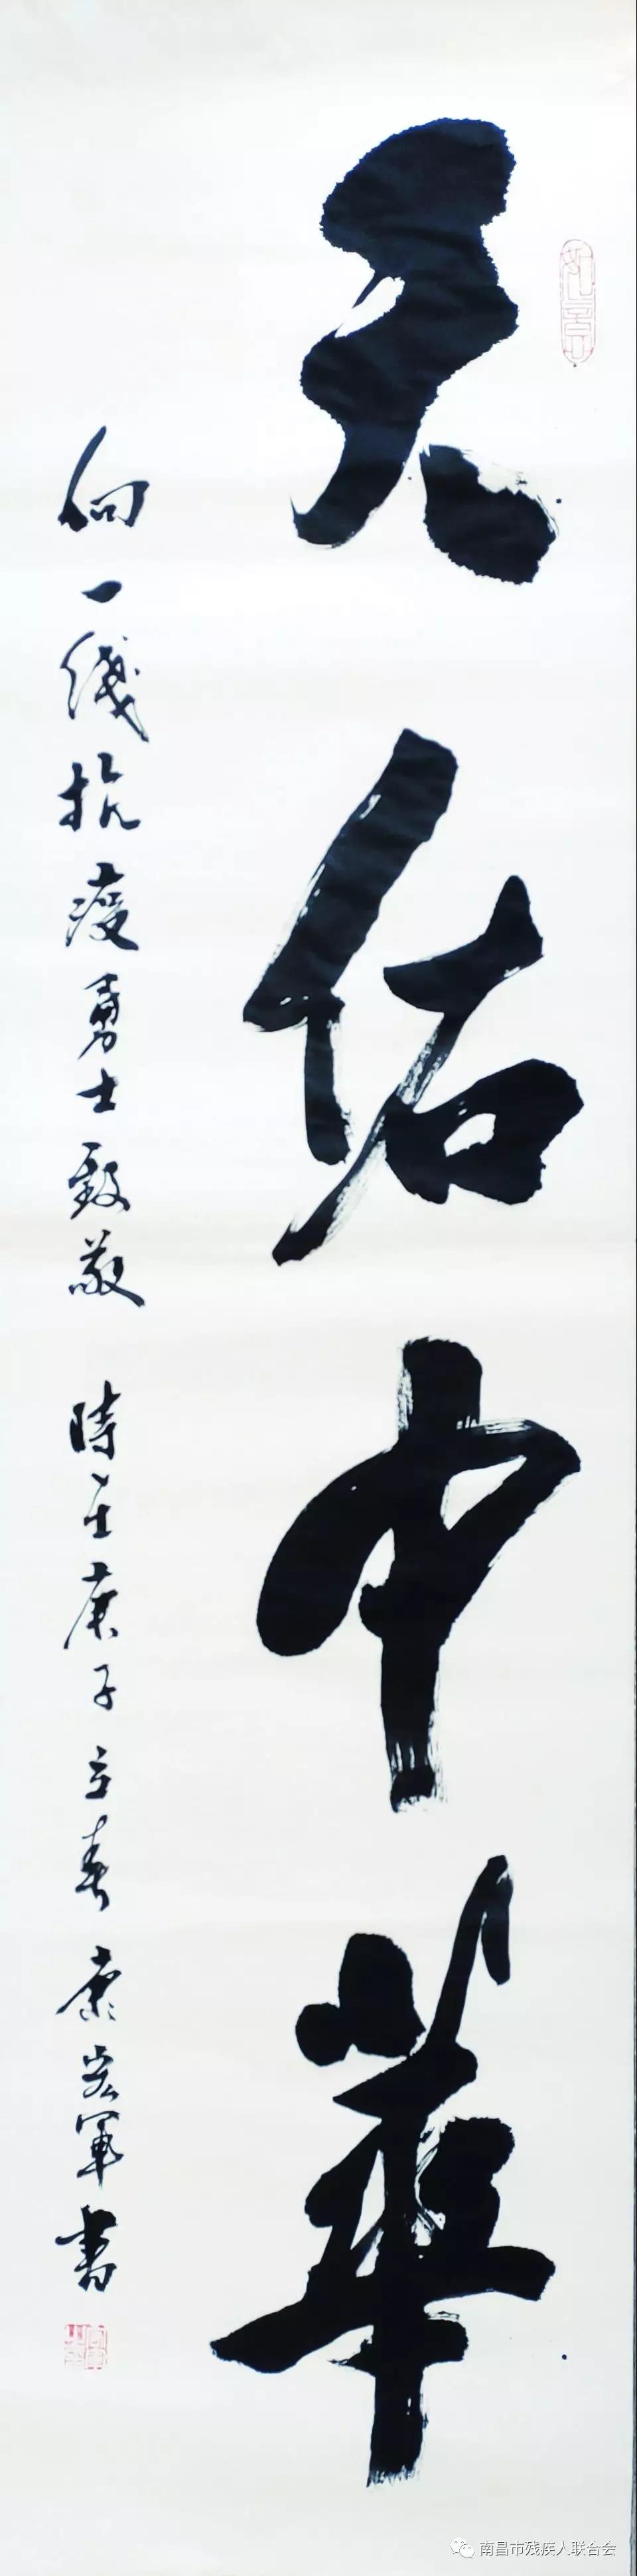 天佑中华
向一线抗疫勇士致敬 時在庚子立春 康宏軍书
南昌市残疾人联合会